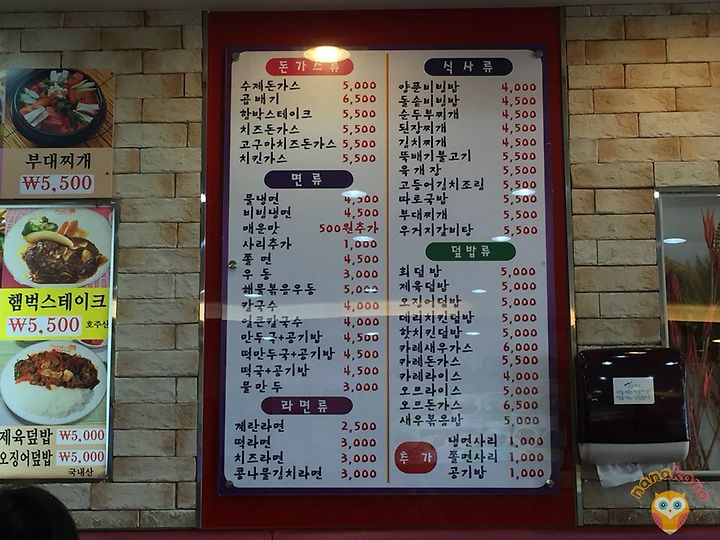 부대찌개
₩5,500
햄벅스테이크
₩5,500 호주산
제육덮밥 ₩5,000
오징어덮밥 ₩5,000
국내산
돈가스류
수제돈가스 5,000
곰배기 6,500
함박스테이크 5,500
치즈돈가스 5,500
고구마치즈돈가스 5,500
치킨가스 5,500
면류
물냉면 4,500
비빔냉면 4,500
매운맛 500원추가
사리추가 1,000
쫄면 4,500
우동 3,000
해물볶음우동 5,000
칼국수 4,000
얼큰칼국수 4,000
만두국+공기밥 4,500
떡만두국+공기밥 4,500
떡국+공기밥 4,500
물만두 3,000
라면류
계란라면 2,500
떡라면 3,000
치즈라면 3,000
콩나물김치라면 3,000
식사류
양푼비빔밥 4,000
돌솥비빔밥 4,500
순두부찌개 4,500
된장찌개 4,500
김치찌개 4,500
뚝배기불고기 5,500
육개장 5,500
고등어김치조림 5,500
따로국밥 5,500
부대찌개 5,500
우거지갈비탕 5,500
덮밥류
회덮밥 5,000
제육덮밥 5,000
오징어덮밥 5,000
데리치킨덮밥 5,000
핫치킨덮밥 5,000
카레새우가스 6,000
카레돈가스 5,500
카레라이스 4,000
오므라이스 5,000
오므돈가스 6,500
새우볶음밥 5,000
추가
냉면사리 1,000
쫄면사리 1,000
공기밥 1,000
nanakono